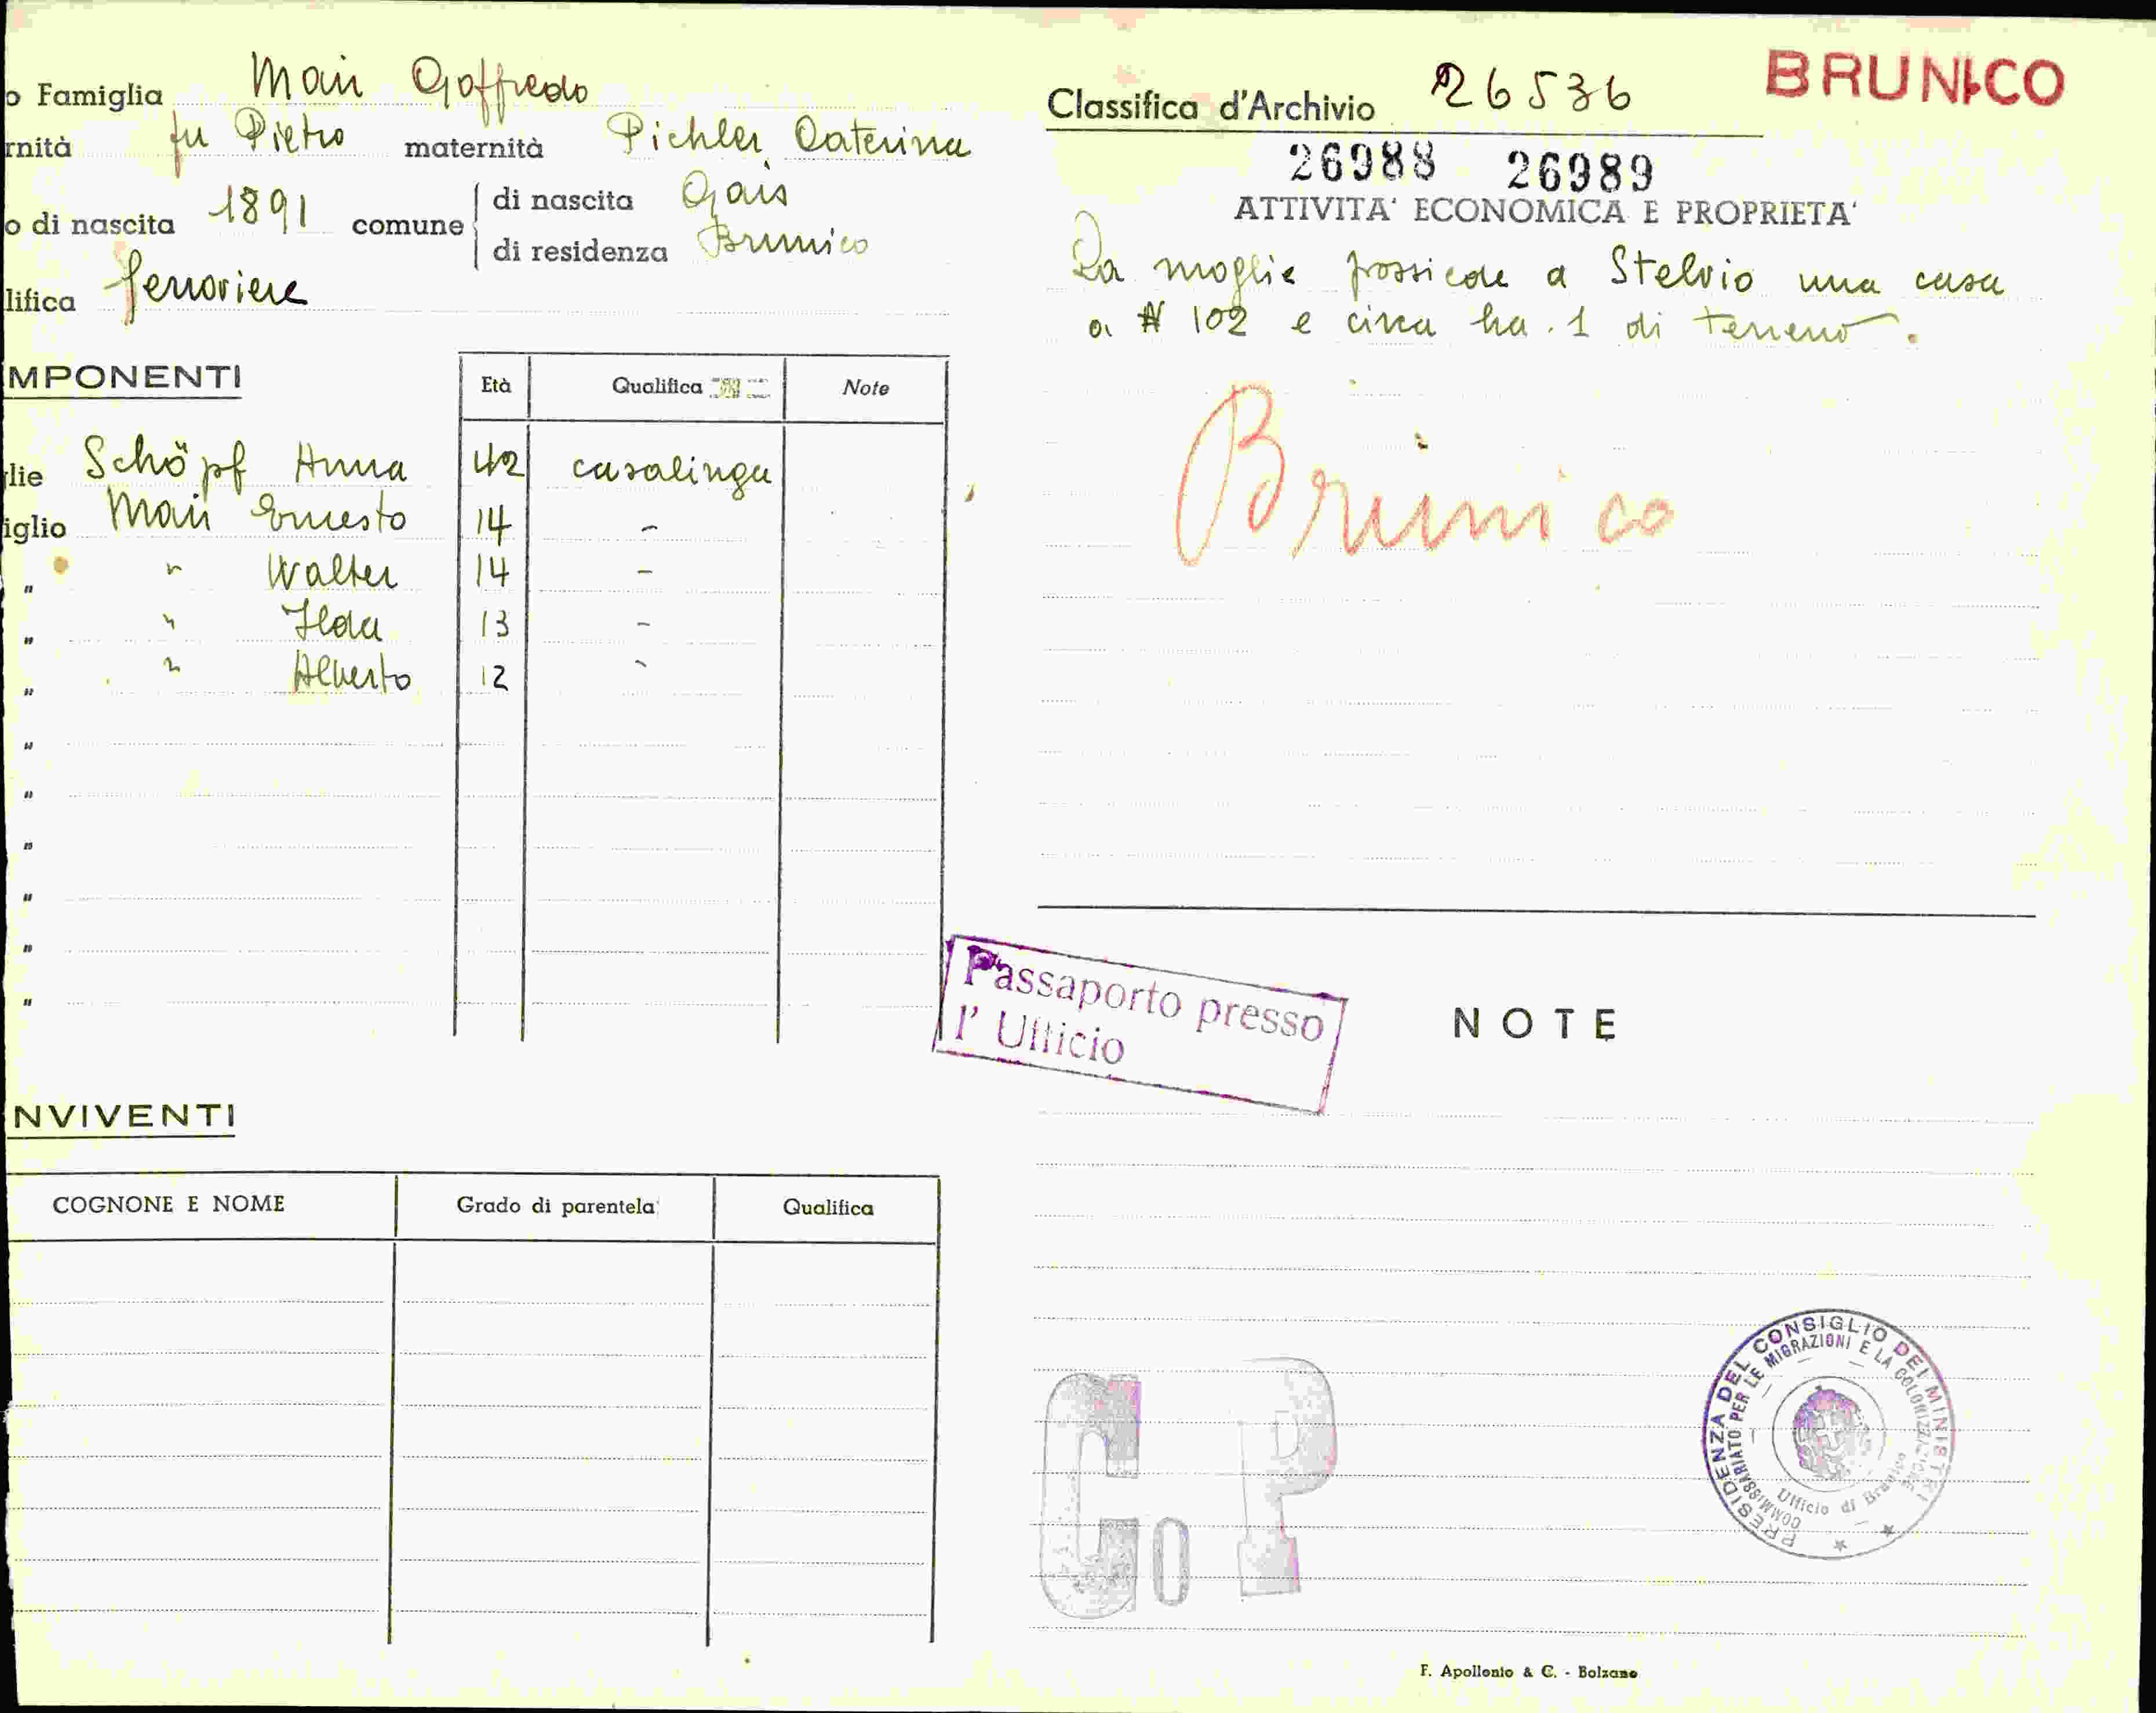 o Famiglia Mair Goffredo
rnità fu Pietro maternità Pichler Caterina
o di nascita 1891 comune di nascita Gais
di residenza Brunico
lifica ferroviere
MPONENTI
Età Qualifica Note
lie Schöpf Anna 42 casalinga
iglio Mair Ernesto 14 -
" " Walter 14 -
" " Ilda 13 -
" " Alberto 12 -
"
"
"
"
"
"
NVIVENTI
COGNONE E NOME Grado di parentela Qualifica
BRUNICO
Classifica d'Archivio 26536
26988 26989
ATTIVITA' ECONOMICA E PROPRIETA'
La moglie possiede a Stelvio una casa
al N 102 e circa ha. 1 di terreno.
Brunico
Passaporto presso
l' Ufficio
NOTE
Go P
PRESIDENZA DEL CONSIGLIO DEI MINISTRI
COMMISSARIATO PER LE MIGRAZIONI E LA COLONIZZAZIONE
Ufficio di Brunico
F. Apollonio & C. - Bolzano